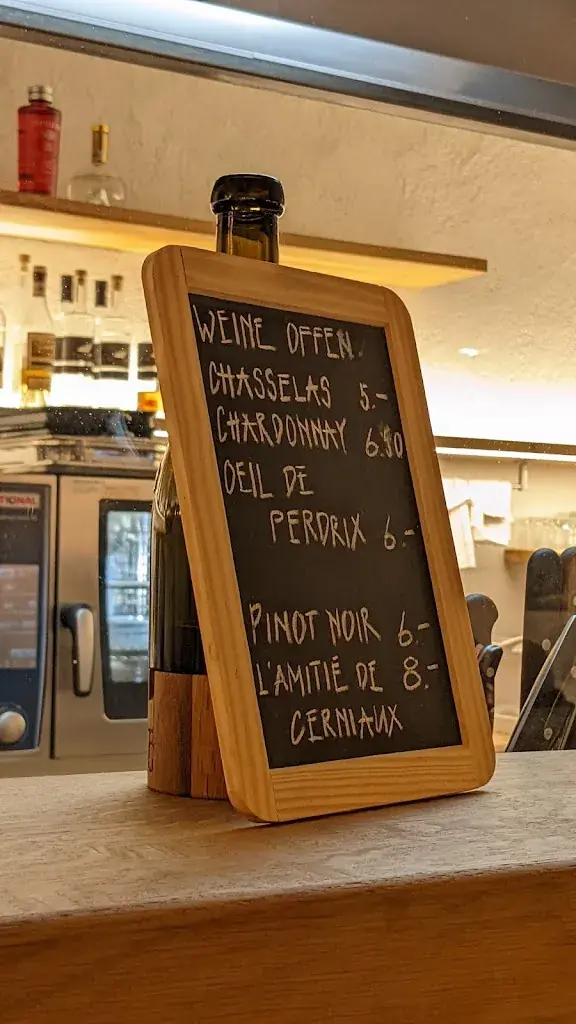 WEINE OFFEN
CHASSELAS 5.-
CHARDONNAY 6.50
OEIL DE
PERDRIX 6.-
PINOT NOIR 6.-
L'AMITIÉ DE 8.-
CERNIAUX